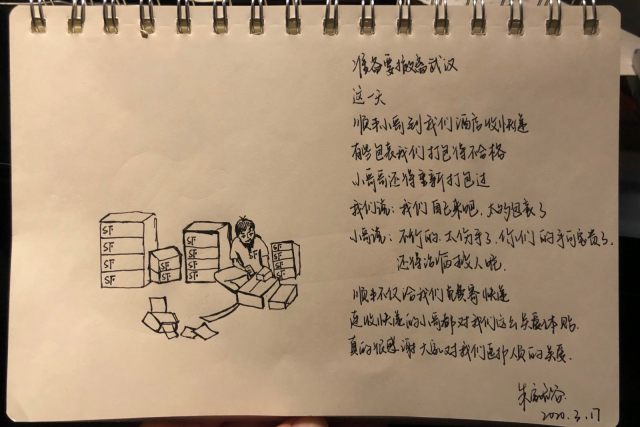 准备要撤离武汉
这一天
顺丰小哥到我们酒店收快递
有些包裹我们打包得不合格
小哥哥还得重新打包过
我们说：我们自己来吧，太多包裹了
小哥说：不行的，太伤手了，你们的手可宝贵了，
还得治病救人呢．
顺丰不仅给我们免费寄快递
连收快递的小哥都对我们这么关爱体贴．
真的很感谢大家对我们医护人员的关爱．
2020.3.17
SF
SF
SF
SF
SF
SF
SF
SF